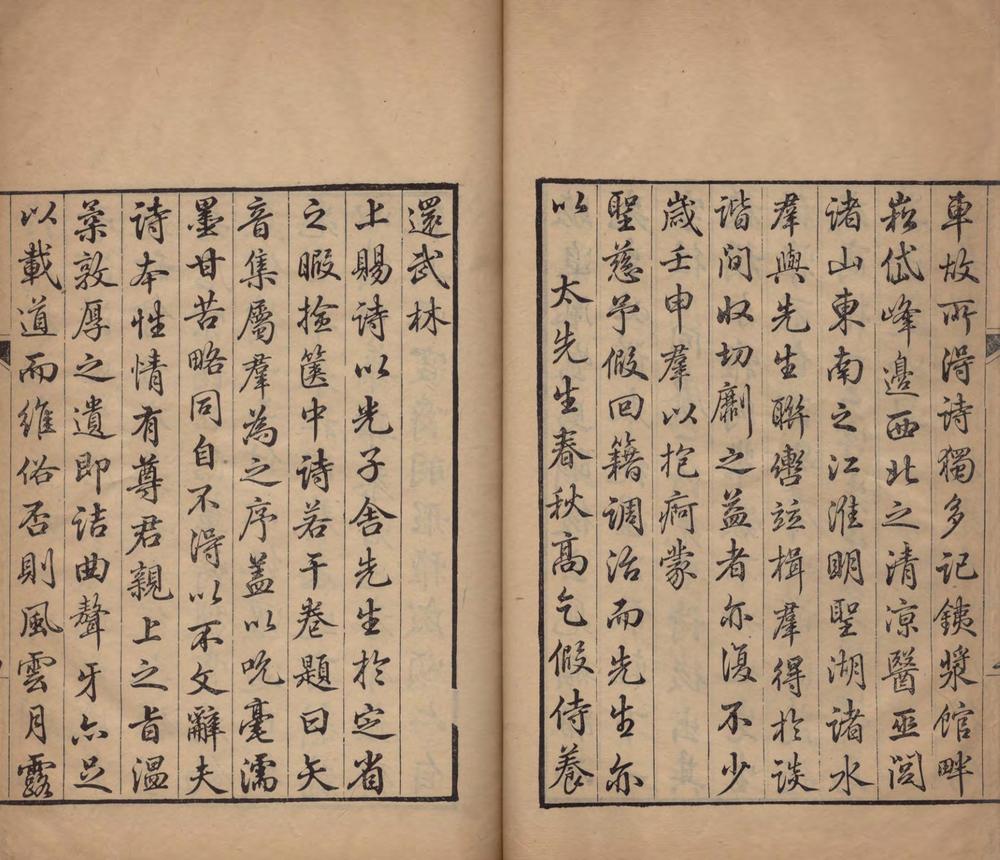 車故所得詩獨多記銕漿館畔
崧岱峰邊西北之清凉醫巫閭
諸山東南之江淮明聖湖諸水
羣與先生聯轡竝楫羣得於談
諧間収切劘之益者亦復不少
歲壬申羣以抱痾蒙
聖慈予假回籍調治而先生亦
以 太先生春秋高乞假侍養
還武林
上賜詩以光子舍先生於定省
之暇撿篋中詩若干卷題曰矢
音集屬羣為之序蓋以吮毫濡
墨甘苦略同自不得以不文辭夫
詩本性情有尊君親上之旨溫
柔敦厚之遺即詰曲聱牙亦足
以載道而維俗否則風雲月露